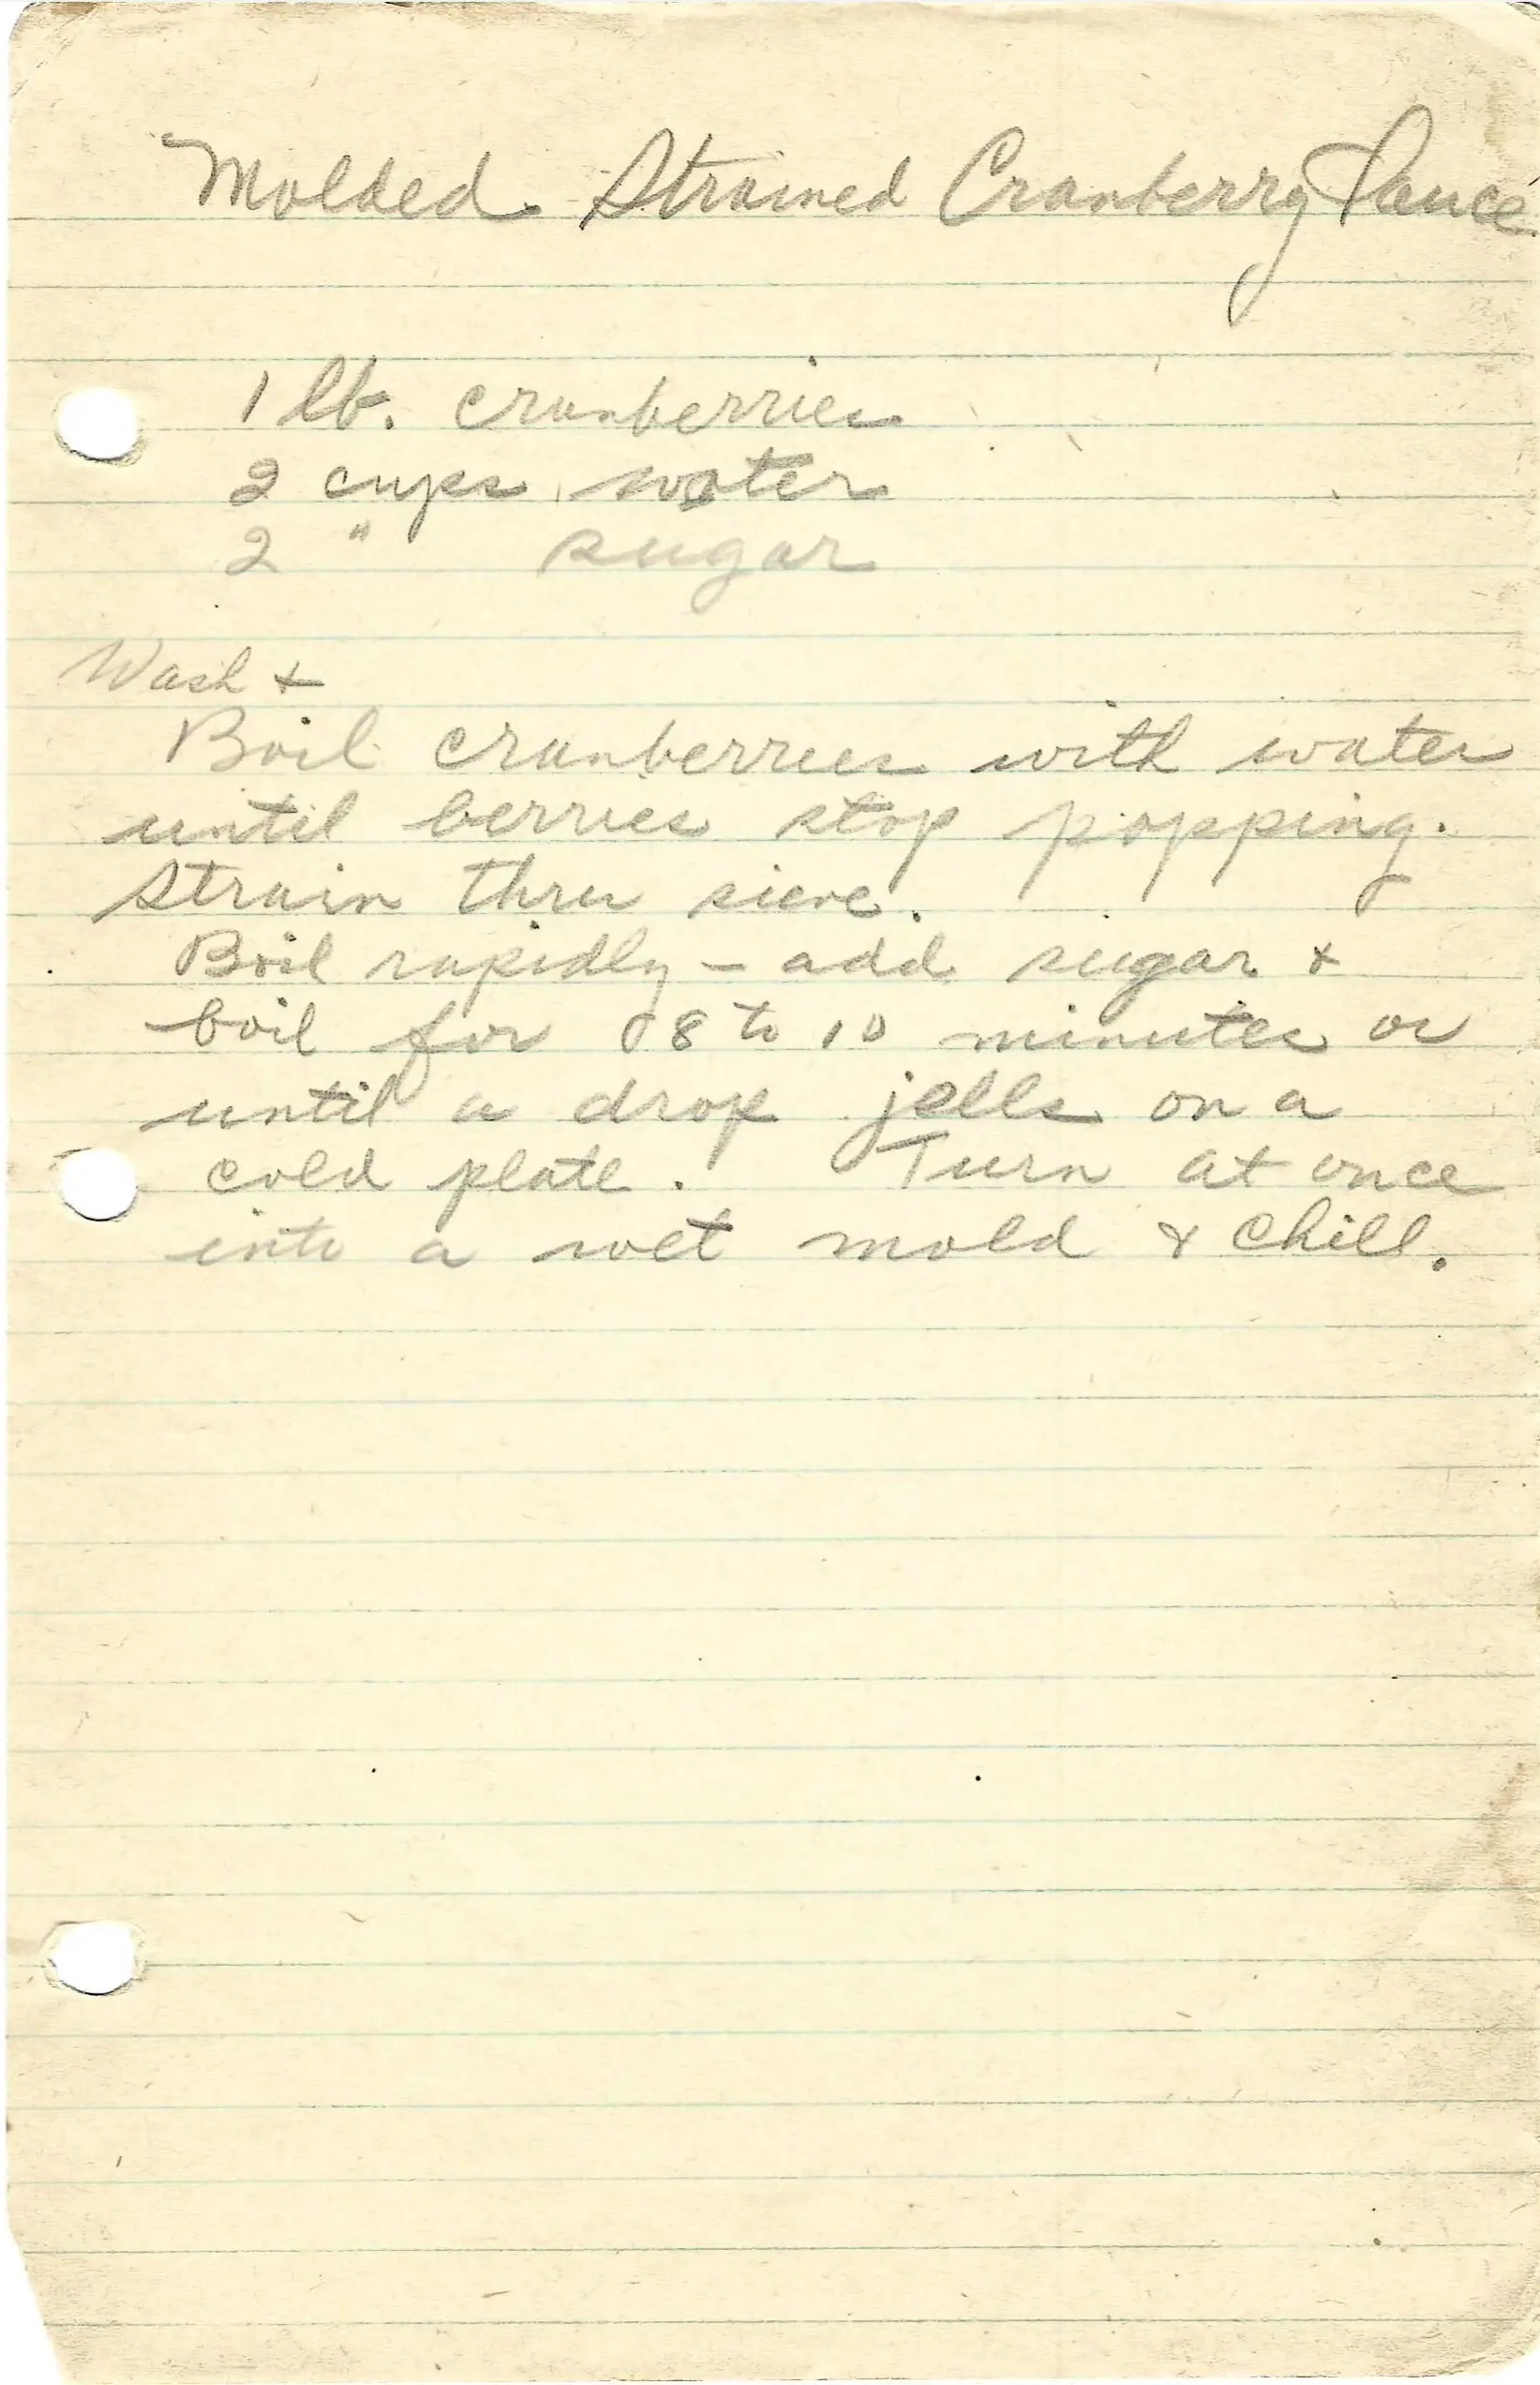 Molded Strained Cranberry Sauce
1 lb. cranberries
2 cups water
2 " sugar
Wash +
Boil cranberries with water
until berries stop popping.
Strain thru sieve.
Boil rapidly - add sugar +
boil for 8 to 10 minutes or
until a drop jells on a
cold plate. Turn at once
into a wet mold + chill.